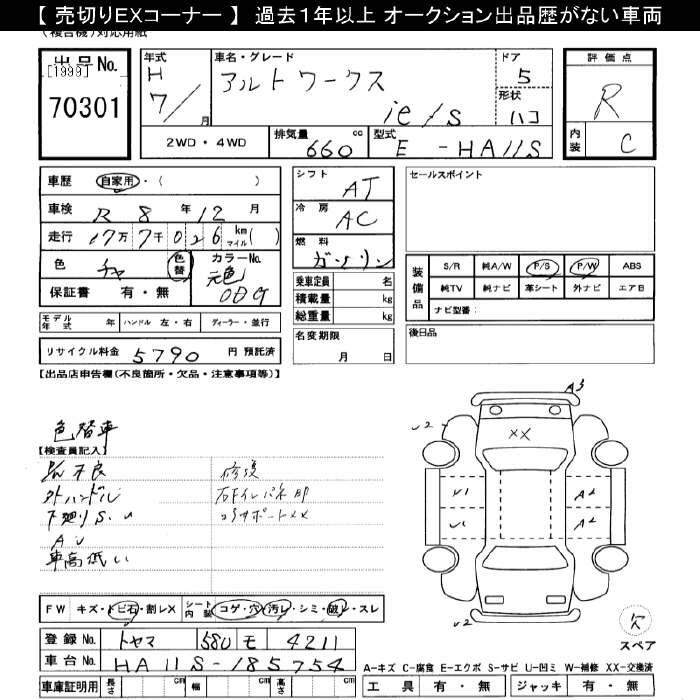 【 売切りEXコーナー 】 過去１年以上 オークション出品歴がない車両
(複合機)対応用紙
出品No.
[1999]
70301
年式
H
7/
月
車名・グレード
アルトワークス
ie/s
ドア
5
形状
ハコ
2WD・4WD
排気量
660
cc
型式
E -HA11S
評価点
R
内装
C
車歴
自家用・( )
車検
R 8 年 12 月
走行
17万7千026
km
マイル
( )
色
チャ
色替
カラーNo.
元色
0D9
保証書 有・無
モデル年式 年
ハンドル 左・右
ディーラー・並行
リサイクル料金 5790 円 預託済
シフト
AT
冷房
AC
燃料
ガソリン
乗車定員 名
積載量 kg
総重量 kg
名変期限
月 日
セールスポイント
装備品
S/R 純A/W P/S P/W ABS
純TV 純ナビ 革シート 外ナビ エアB
ナビ型番:
後日品
【出品店申告欄(不良箇所・欠品・注意事項等)】
色替車
【検査員記入】
外ハンドル
下廻りS.U
AU
車高低い
修復
コアサポートXX
A3
U2
XX
U1
A2
U1
A2
U2
欠
スペア
FW キズ・トビ石・割レX
シート内装 コゲ・穴・汚レ・シミ・破レ・スレ
登録No. トヤマ 580 モ 4211
車台No. HA11S-185754
車庫証明用 長さ cm 幅 cm 高さ cm
A-キズ C-腐食 E-エクボ S-サビ U-凹ミ W-補修 XX-交換済
工具 有・無
ジャッキ 有・無